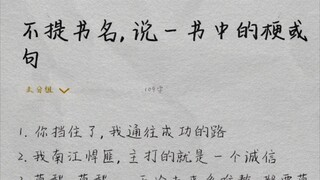 不提书名,说一书中的梗或
句
未分组
1. 你挡住了,我通往成功的路
2. 我南江悍匪,主打的就是一个诚信